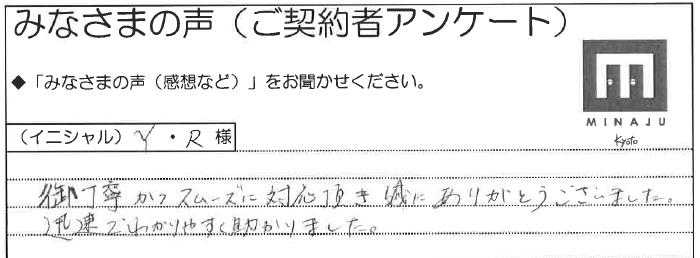 みなさまの声（ご契約者アンケート）
◆「みなさまの声（感想など）」をお聞かせください。
MINAJU
Kyoto
（イニシャル）Y・R様
御丁寧かつスムーズに対応頂き誠にありがとうございました。
迅速でわかりやすく助かりました。